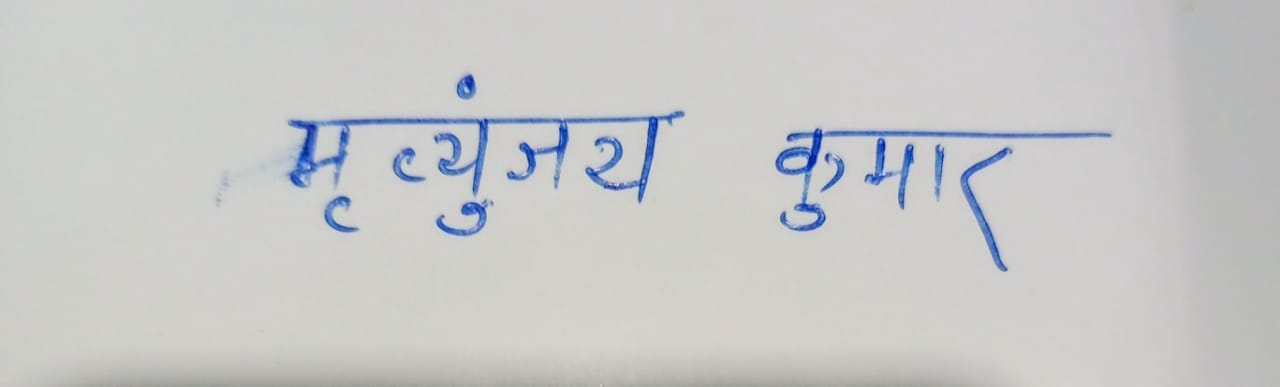 मृत्युंजय कुमार